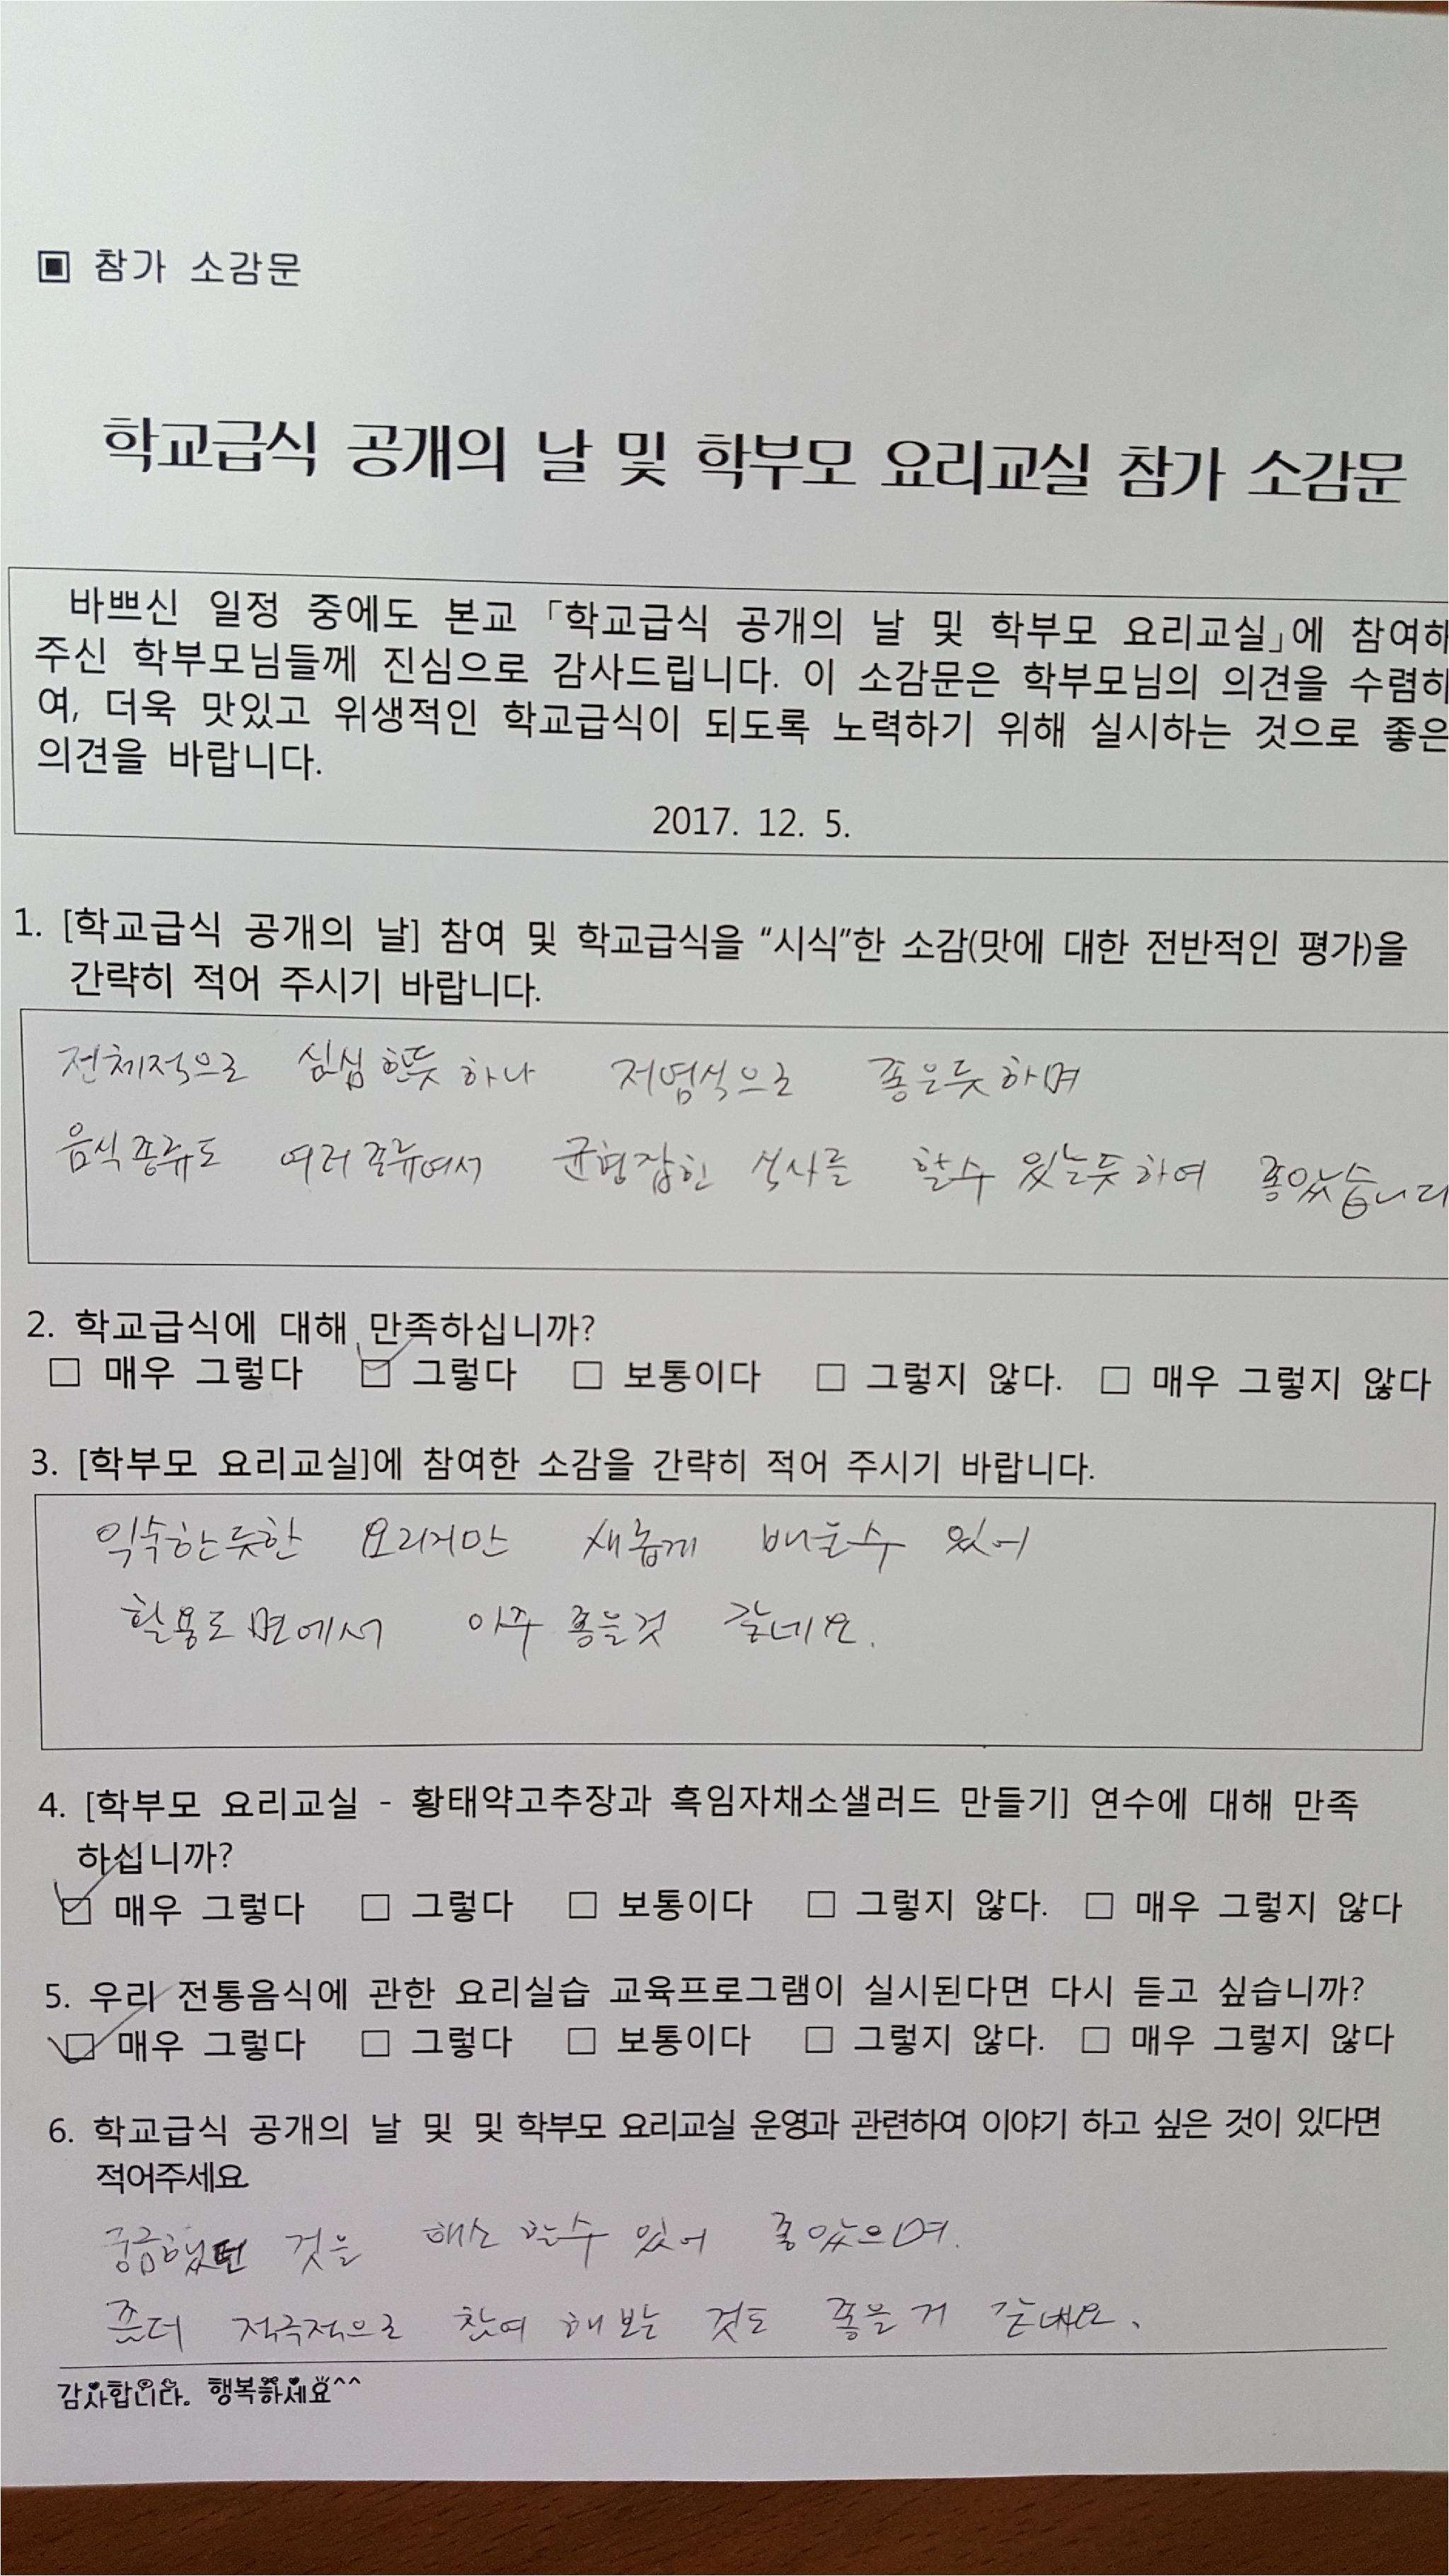 ▣ 참가 소감문
학교급식 공개의 날 및 학부모 요리교실 참가 소감문
바쁘신 일정 중에도 본교 「학교급식 공개의 날 및 학부모 요리교실」에 참여하
주신 학부모님들께 진심으로 감사드립니다. 이 소감문은 학부모님의 의견을 수렴하
여, 더욱 맛있고 위생적인 학교급식이 되도록 노력하기 위해 실시하는 것으로 좋은
의견을 바랍니다.
2017. 12. 5.
1. [학교급식 공개의 날] 참여 및 학교급식을 “시식”한 소감(맛에 대한 전반적인 평가)을
간략히 적어 주시기 바랍니다.
전체적으로 심심한듯 하나 저염식으로 좋은듯하며
음식종류도 여러종류여서 균형잡힌 식사를 할수 있는듯하여 좋았습니다
2. 학교급식에 대해 만족하십니까?
□ 매우 그렇다 ☑ 그렇다 □ 보통이다 □ 그렇지 않다. □ 매우 그렇지 않다
3. [학부모 요리교실]에 참여한 소감을 간략히 적어 주시기 바랍니다.
익숙한듯한 요리지만 새롭게 배울수 있어
활용도 면에서 아주 좋을것 같네요.
4. [학부모 요리교실 - 황태약고추장과 흑임자채소샐러드 만들기] 연수에 대해 만족
하십니까?
☑ 매우 그렇다 □ 그렇다 □ 보통이다 □ 그렇지 않다. □ 매우 그렇지 않다
5. 우리 전통음식에 관한 요리실습 교육프로그램이 실시된다면 다시 듣고 싶습니까?
☑ 매우 그렇다 □ 그렇다 □ 보통이다 □ 그렇지 않다. □ 매우 그렇지 않다
6. 학교급식 공개의 날 및 및 학부모 요리교실 운영과 관련하여 이야기 하고 싶은 것이 있다면
적어주세요
궁금했던 것을 해소 할수 있어 좋았으며.
좀더 적극적으로 참여 해보는 것도 좋을거 같네요.
감사합니다. 행복하세요^^